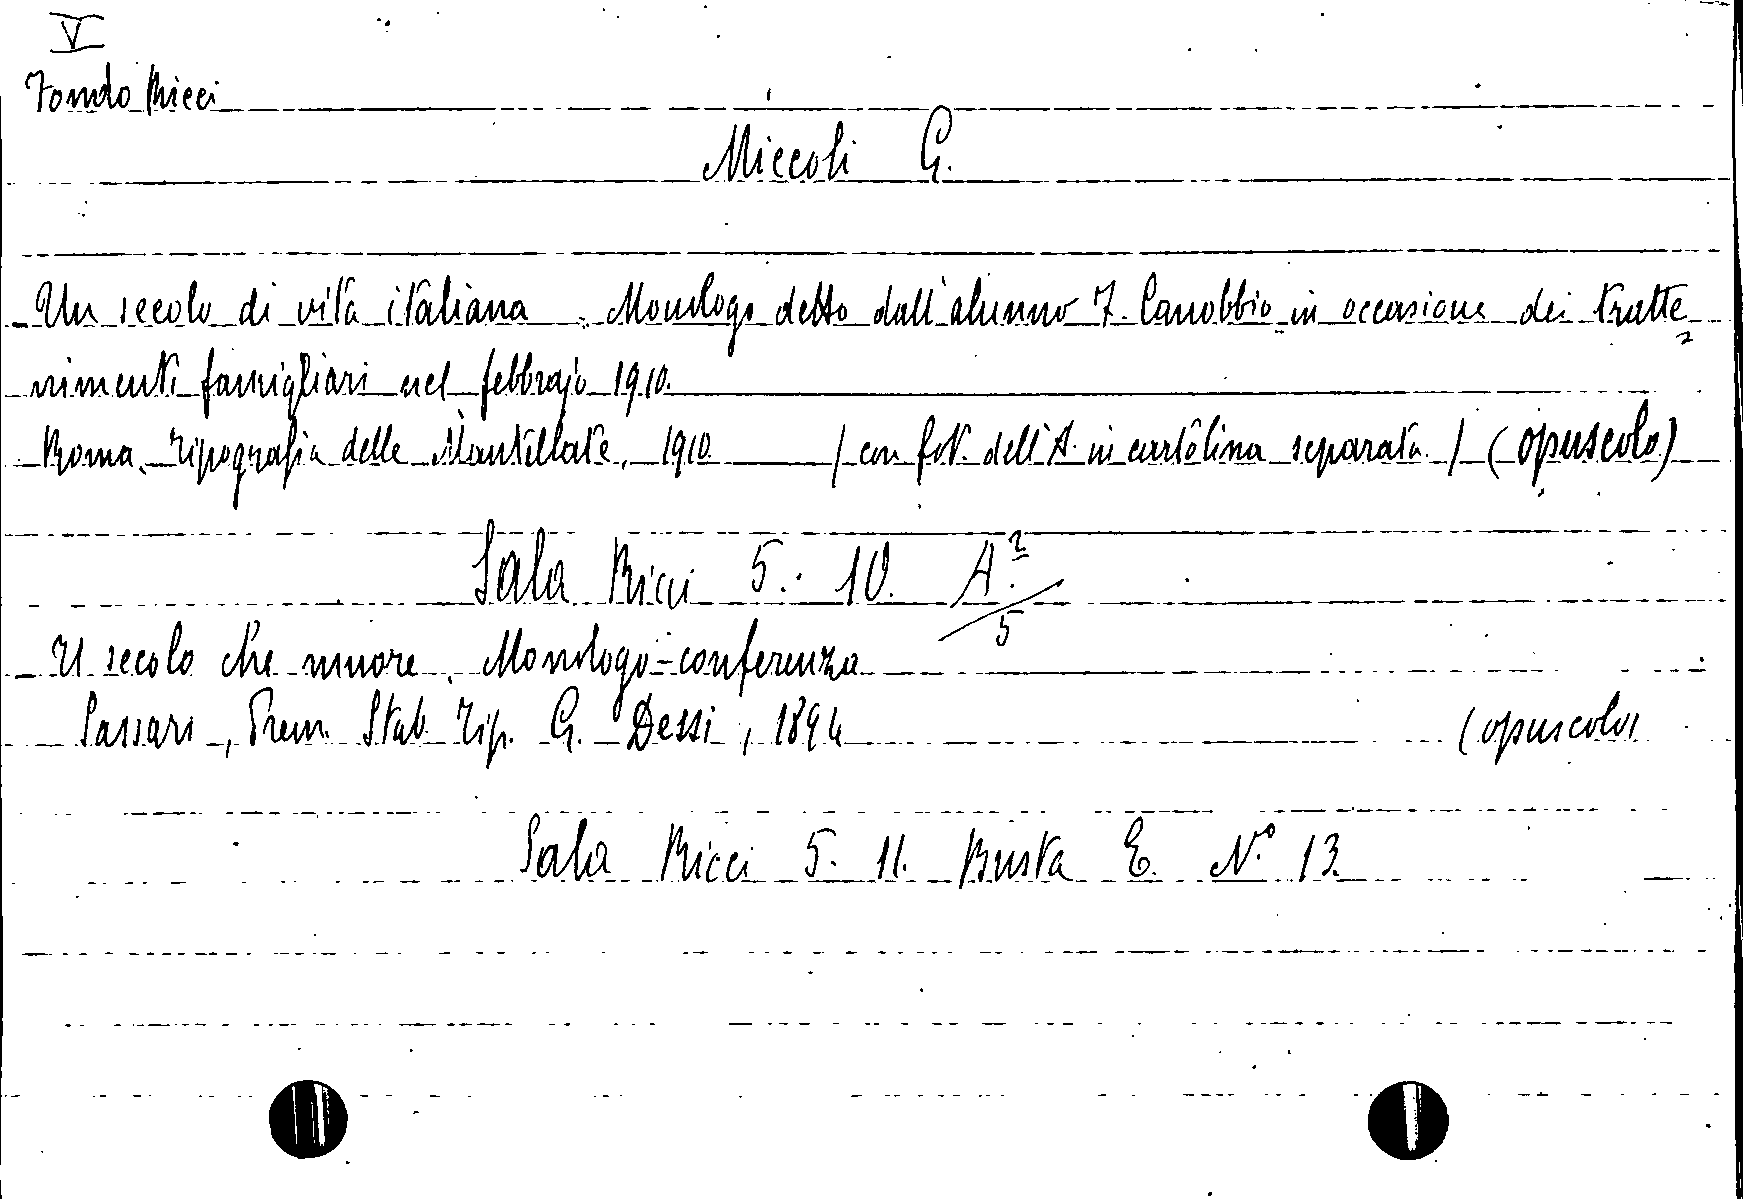 V
Fondo Ricci
Miccoli G.
Un secolo di vita italiana. Monologo detto dall'alunno F. Canobbio in occasione dei tratte=
nimenti famigliari nel febbrajo 1910.
Roma, Tipografia delle Mantellate, 1910 / con fot. dell'A. in cartolina separata / (opuscolo)
Sala Ricci 5. 10. A²/5
Il secolo che muore. Monologo-conferenza
Sassari, Prem. Stab. Tip. G. Dessi, 1894 (opuscolo)
Sala Ricci 5. 11. Busta E. N.º 13.